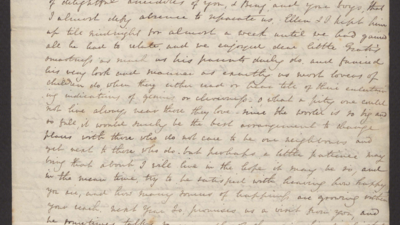 of delightful anecdotes of you, & Benj, and your boys, that
I almost defy absence to separate us. Ellen & I kept him
up till midnight for almost a week until we had gained
all he had to relate, and we enjoyed dear little
smartness as much as his parents surely do, and fancied
his very look and manner as exactly as most lovers of
children do when they either read or hear tell of these
indications of genius or cleverness. what a pity one could
not live always near those they love. since the world is so big and
so full, it would surely be the best arrangement to change
places with those who do not care to be our neighbours and
get next to those who do. but perhaps a little patience may
bring that about, I will live in the hope it may be so and
in the mean time, try to be satisfied with hearing how happy
you are, and how many sources of happiness are growing within
your reach. next year he promises us a visit from you and
he sometimes talks